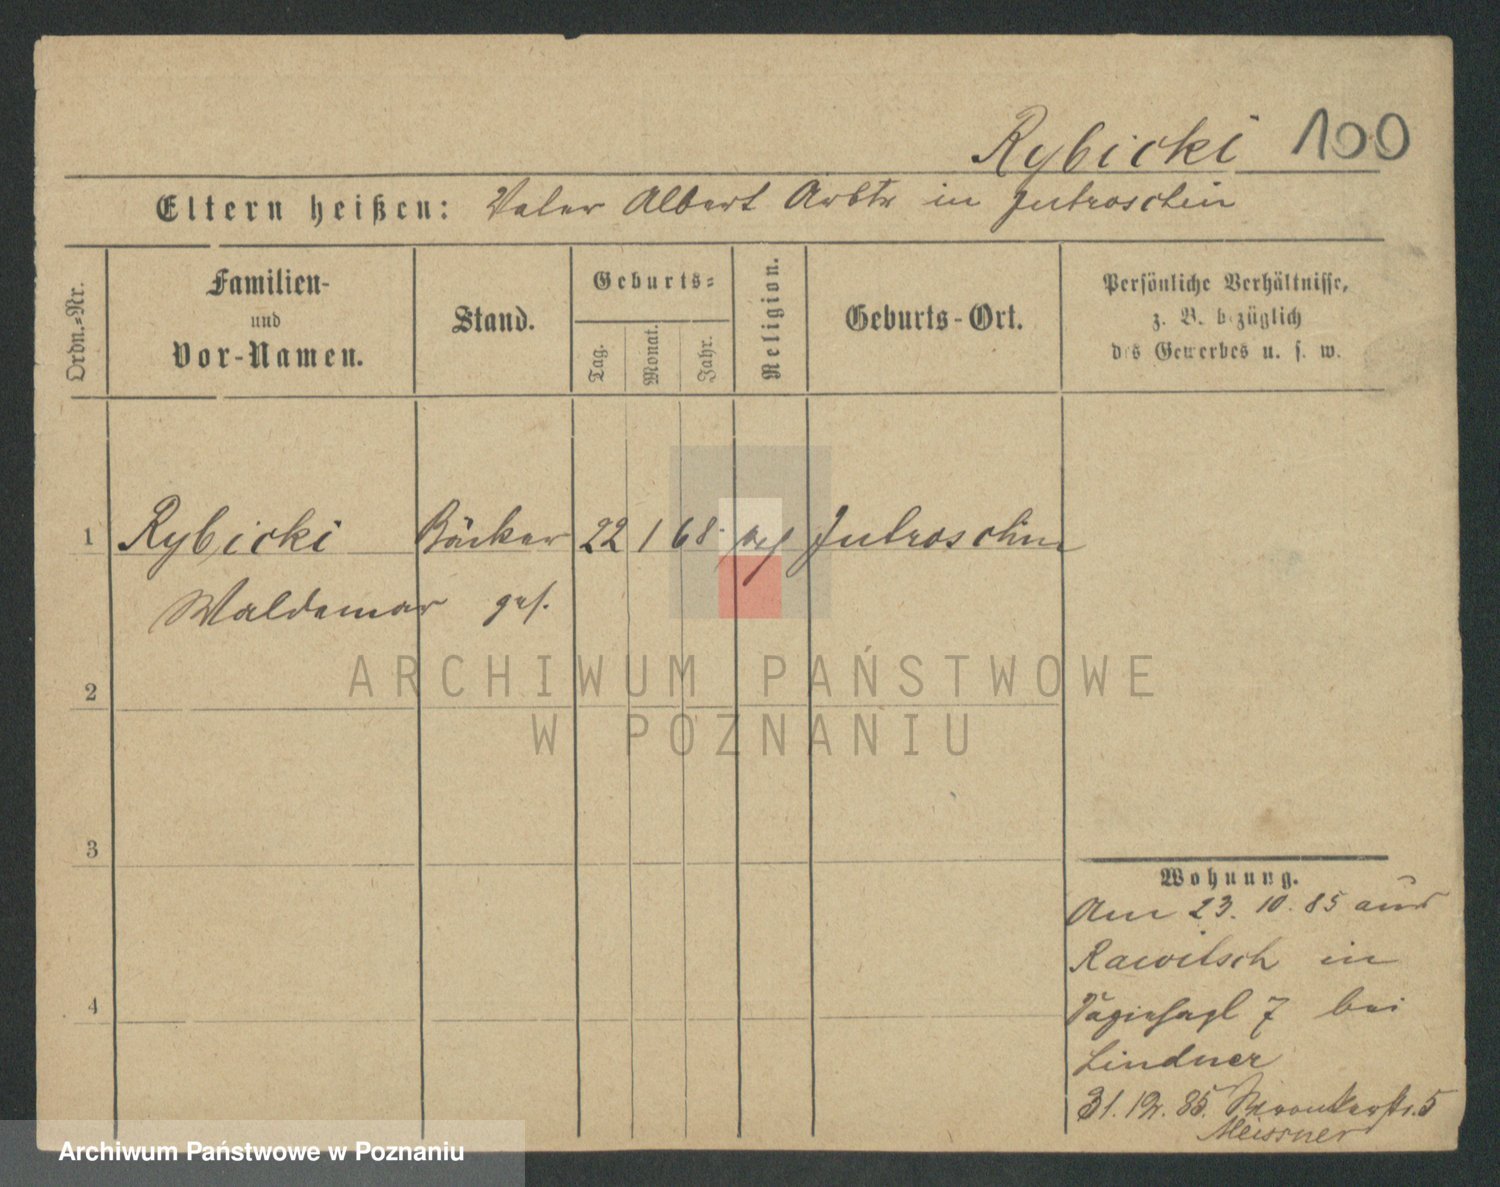 Rybicki 100
Eltern heißen: Vater Albert Arbtr in Jutroschin
Ordn.=Nr.
Familien-
und
Vor-Namen.
Stand.
Geburts=
Tag.
Monat.
Jahr.
Religion.
Geburts-Ort.
Persönliche Verhältnisse,
z. B. bezüglich
des Gewerbes u. s. w.
1 Rybicki Bäcker 22 1 68. Jutroschin
Waldemar
2
3
4
Wohnung.
Am 23. 10. 85 aus
Rawitsch in
7 bei
Lindner
31. 12. 85. Wronkerstr. 5
Meissner
ARCHIWUM PAŃSTWOWE
W POZNANIU
Archiwum Państwowe w Poznaniu